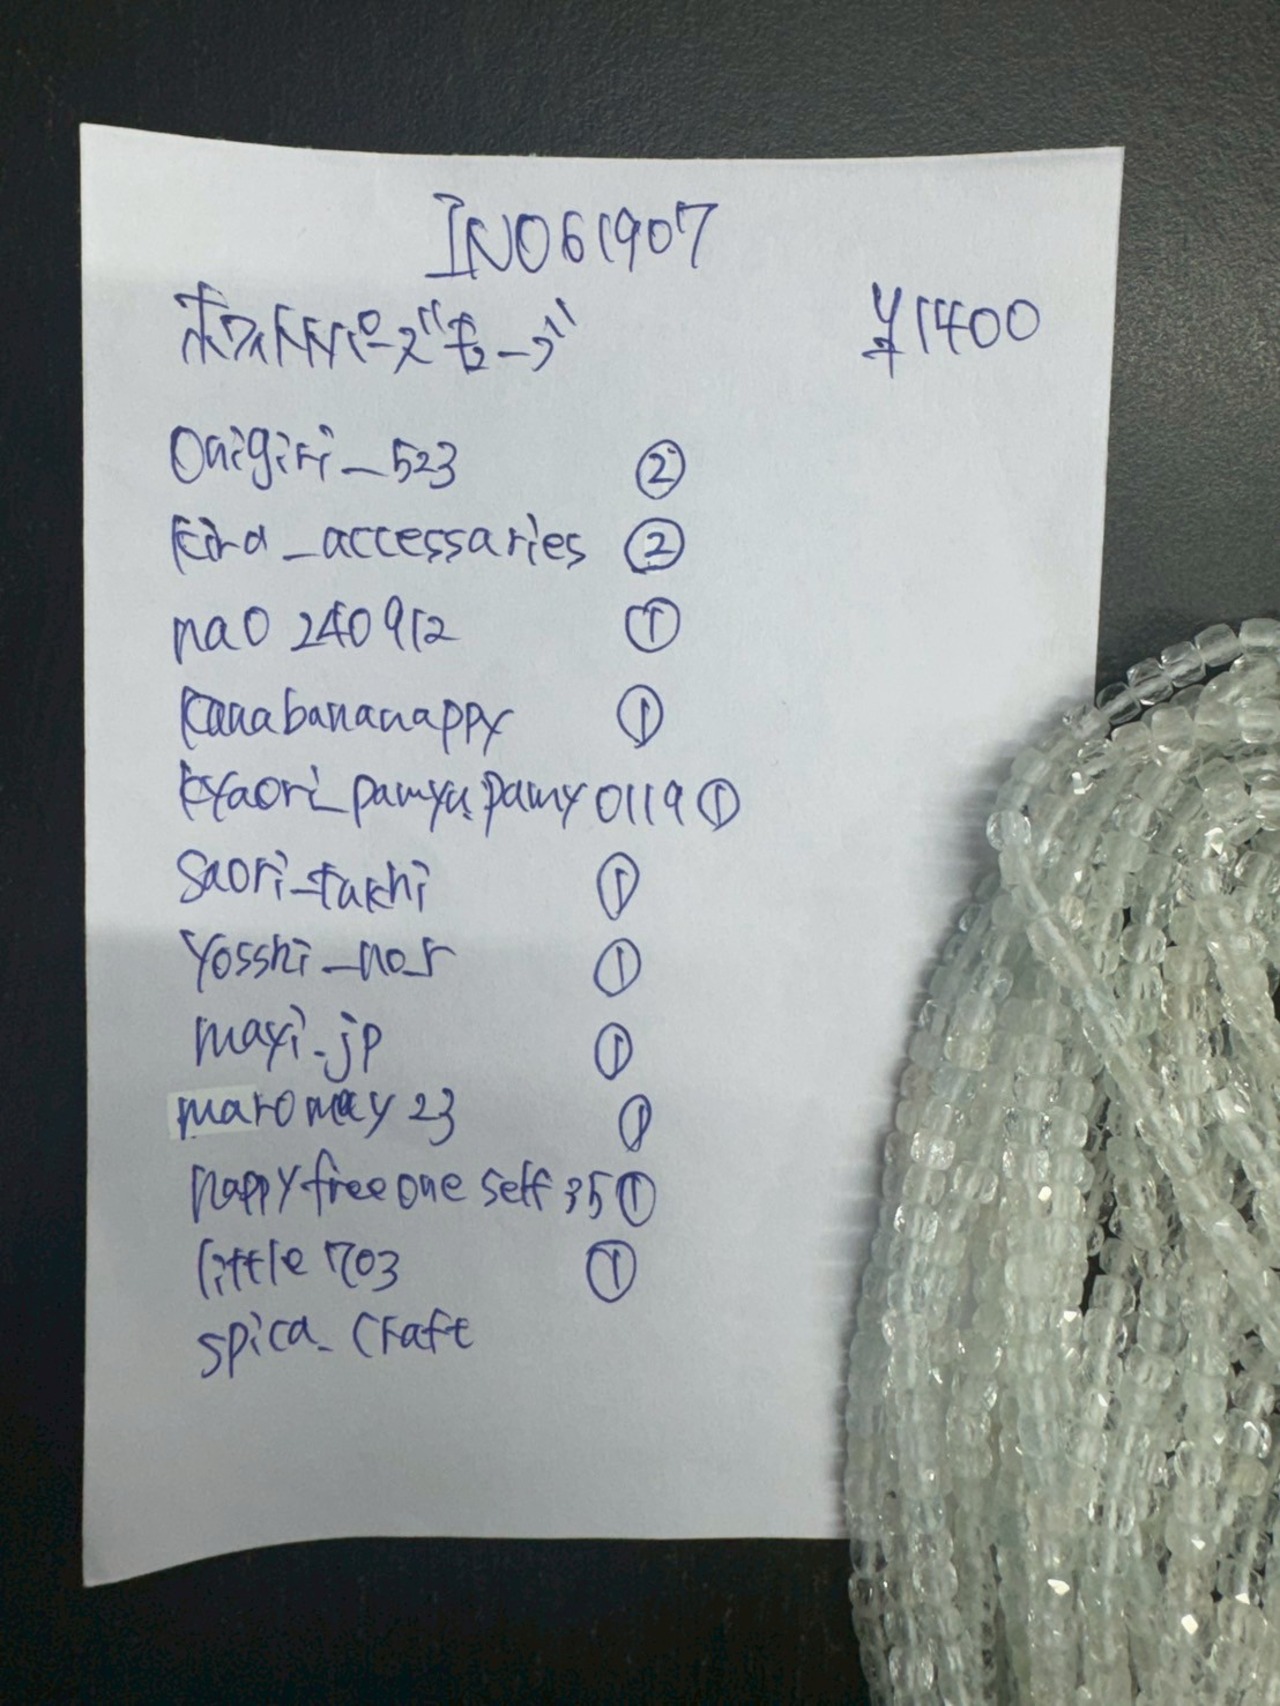 IN061907
ホワイトトパーズ"キューブ" ¥1400
Onigiri_523 ②
kira_accessaries ②
nao 240912 ①
kanabananappy ①
kyaori_pamyupamy0119 ①
Saori_takhi ①
Yosshi_no_r ①
mayi_jp ①
maromay23 ①
happyfreeoneself35 ①
little703 ①
spica_craft